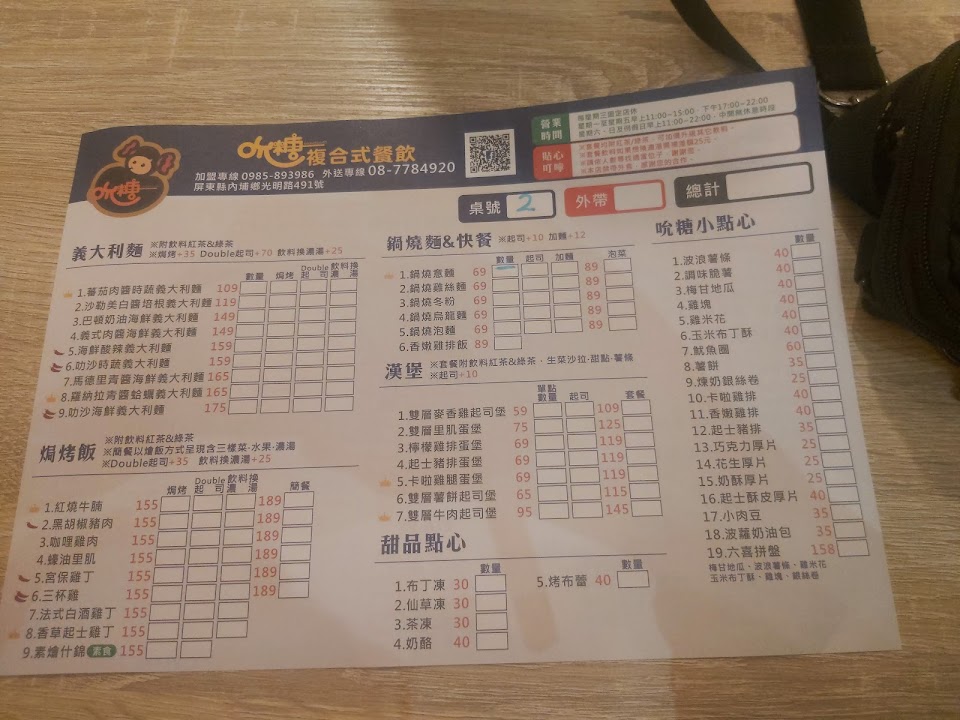 吮糖複合式餐飲
加盟專線 0985-893986 外送專線 08-7784920
屏東縣內埔鄉光明路491號
營業時間
星期一至星期五早上11:00~15:00．下午17:00~22:00
星期六．日及例假日早上11:00~22:00．中間無休息時段
貼心叮嚀
桌號 2 外帶 總計
義大利麵
※附飲料紅茶&綠茶
※焗烤+35 Double起司+70 飲料換濃湯+25
數量 焗烤 Double起司 飲料換濃湯
1.蕃茄肉醬時蔬義大利麵 109
2.沙勒美白醬培根義大利麵 119
3.巴頓奶油海鮮義大利麵 149
4.義式肉醬海鮮義大利麵 149
5.海鮮酸辣義大利麵 159
6.叻沙時蔬義大利麵 159
7.馬德里青醬海鮮義大利麵 165
8.羅納拉青醬蛤蠣義大利麵 165
9.叻沙海鮮義大利麵 175
焗烤飯
※附飲料紅茶&綠茶
※簡餐以燴飯方式呈現含三樣菜·水果·濃湯
※Double起司+35 飲料換濃湯+25
焗烤 Double起司 飲料換濃湯 簡餐
1.紅燒牛腩 155 189
2.黑胡椒豬肉 155 189
3.咖哩雞肉 155 189
4.蠔油里肌 155 189
5.宮保雞丁 155 189
6.三杯雞 155 189
7.法式白酒雞丁 155
8.香草起士雞丁 155
9.素燴什錦 素食 155
鍋燒麵&快餐 ※起司+10 加麵+12
數量 起司 加麵 泡菜
1.鍋燒意麵 69 89
2.鍋燒雞絲麵 69 89
3.鍋燒冬粉 69 89
4.鍋燒烏龍麵 69 89
5.鍋燒泡麵 69 89
6.香嫩雞排飯 89
漢堡
※套餐附飲料紅茶&綠茶．生菜沙拉·甜點·薯條
※起司+10
單點數量 起司 套餐
1.雙層麥香雞起司堡 59 109
2.雙層里肌蛋堡 75 125
3.檸檬雞排蛋堡 69 119
4.起士豬排蛋堡 69 119
5.卡啦雞腿蛋堡 69 119
6.雙層薯餅起司堡 65 115
7.雙層牛肉起司堡 95 145
甜品點心
數量 數量
1.布丁凍 30 5.烤布蕾 40
2.仙草凍 30
3.茶凍 30
4.奶酪 40
吮糖小點心
數量
1.波浪薯條 40
2.調味脆薯 40
3.梅甘地瓜 40
4.雞塊 40
5.雞米花 40
6.玉米布丁酥 40
7.魷魚圈 60
8.薯餅 35
9.煉奶銀絲卷 25
10.卡啦雞排 40
11.香嫩雞排 40
12.起士豬排 35
13.巧克力厚片 25
14.花生厚片 25
15.奶酥厚片 25
16.起士酥皮厚片 40
17.小肉豆 35
18.波蘿奶油包 35
19.六喜拼盤 158
梅甘地瓜、波浪薯條、雞米花
玉米布丁酥、雞塊、銀絲卷